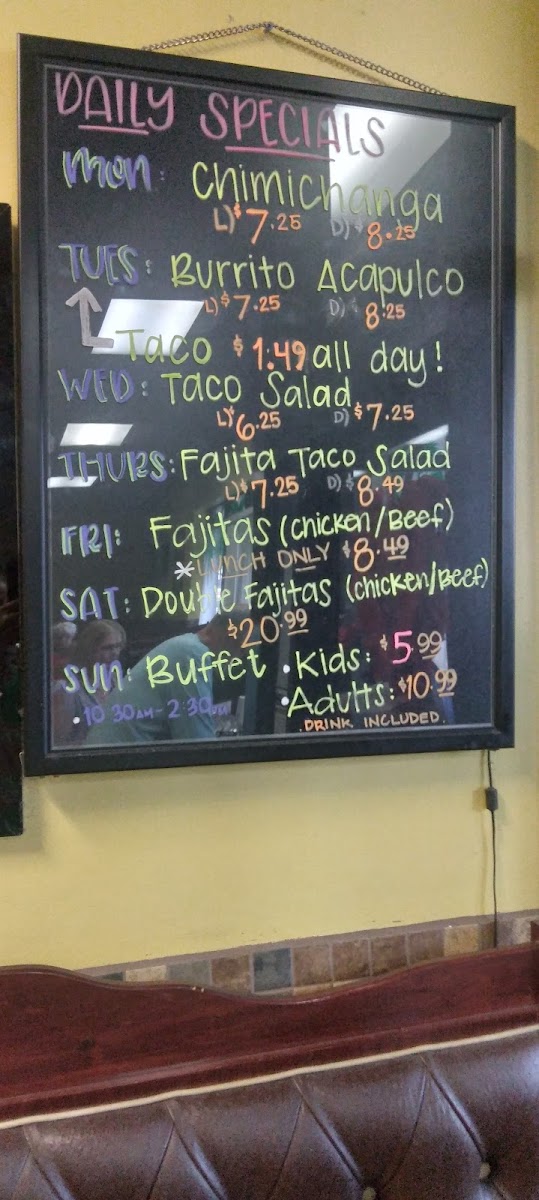 DAILY SPECIALS
Mon: Chimichanga
L) $7.25 D) $8.25
TUES: Burrito Acapulco
L) $7.25 D) $8.25
Taco $1.49 all day!
WED: Taco Salad
L) $6.25 D) $7.25
THURS: Fajita Taco Salad
L) $7.25 D) $8.49
FRI: Fajitas (chicken/Beef)
*LUNCH ONLY $8.49
SAT: Double Fajitas (chicken/Beef)
$20.99
SUN: Buffet •Kids: $5.99
•10 30AM-2:30PM •Adults: $10.99
.DRINK INCLUDED.